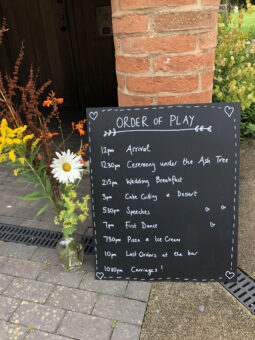 ORDER OF PLAY
12pm Arrival
1230pm Ceremony under the Ash Tree
215pm Wedding Breakfast
5pm Cake Cutting & Dessert
530pm Speeches
7pm First Dance
730pm Pizza & Ice Cream
10pm Last Orders at the bar
1030pm Carriages!